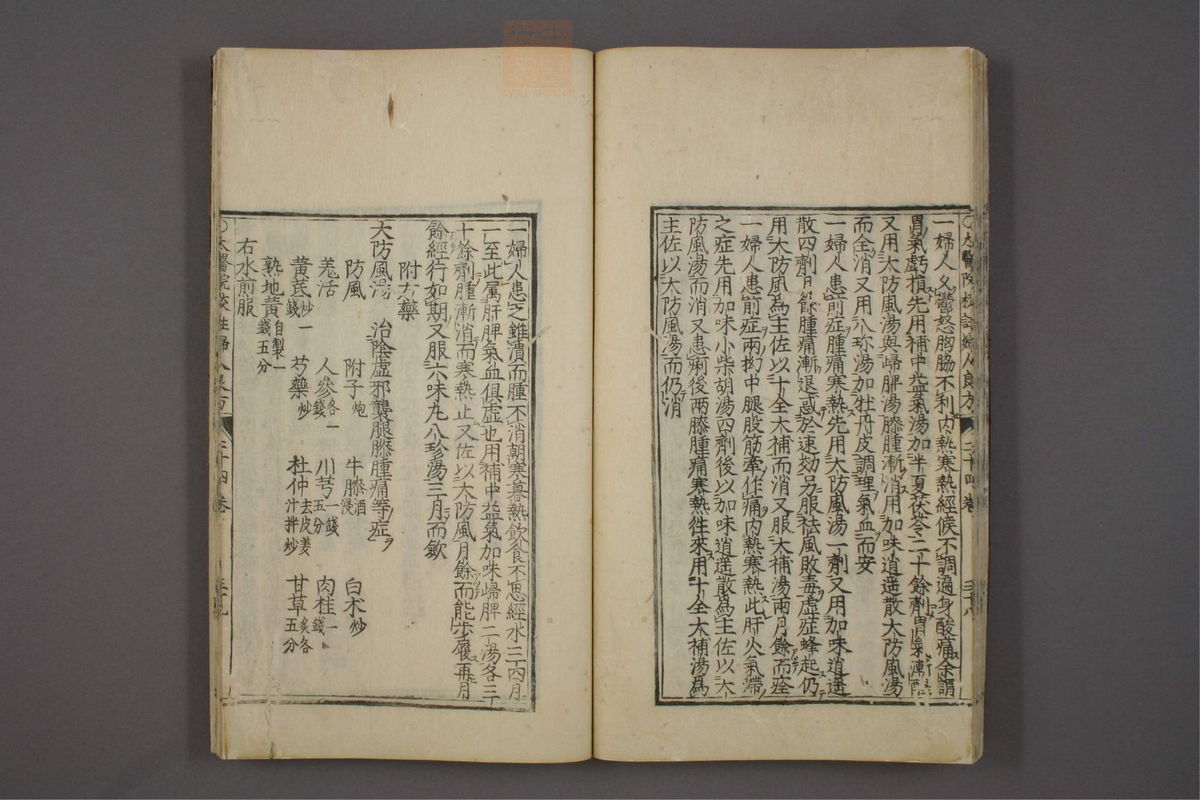 一婦人又鬱怒胸脇不利內熱寒熱經候不調遍身酸痛余謂
胃氣虧損先用補中益氣湯加半夏茯苓二十餘劑胃氣漸
又用大防風湯與歸脾湯膝腫漸消用加味逍遥散大防風湯
而全消又用八珍湯加牡丹皮調理氣血而安
一婦人患前症腫痛寒熱先用大防風湯一劑又用加味逍遥
散四劑月餘腫痛漸退惑於速効另服祛風敗毒虛症蜂起仍
用大防風為主佐以十全大補而消又服大補湯兩月餘而痊
一婦人患前症兩拗中腿股筋牽作痛內熱寒熱此肝火氣滯
之症先用加味小柴胡湯四劑後以加味逍遥散為主佐以大
防風湯而消又患痢後兩膝腫痛寒熱徃來用十全大補湯為
主佐以大防風湯而仍消
二十四卷
三十八
一婦人患之雖潰而腫不消朝寒暮熱飲食不思經水三四月
一至此屬肝脾氣血俱虛也用補中益氣加味歸脾二湯各三
十餘劑腫漸消而寒熱止又佐以大防風月餘而能步履再月
餘經行如期又服六味丸八珍湯三月而歛
附方藥
大防風湯 治陰虛邪襲腿膝腫痛等症
防風 附子炮 牛膝酒浸 白术炒
羗活 人參各一錢 川芎一錢五分 肉桂一錢
黃芪炒一錢 芍藥炒 杜仲去皮姜汁拌炒 甘草炙各五分
熟地黃自製一錢五分
右水煎服
二十四卷
三十九